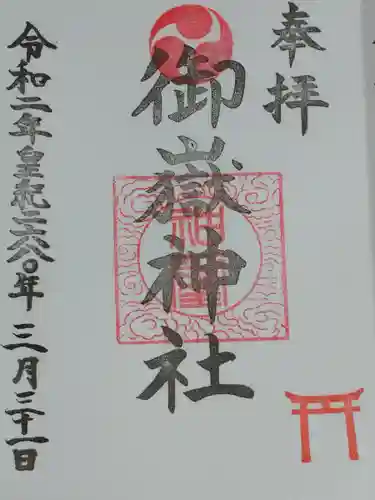 奉拝
御嶽神社
令和二年皇紀二六八〇年三月二十一日